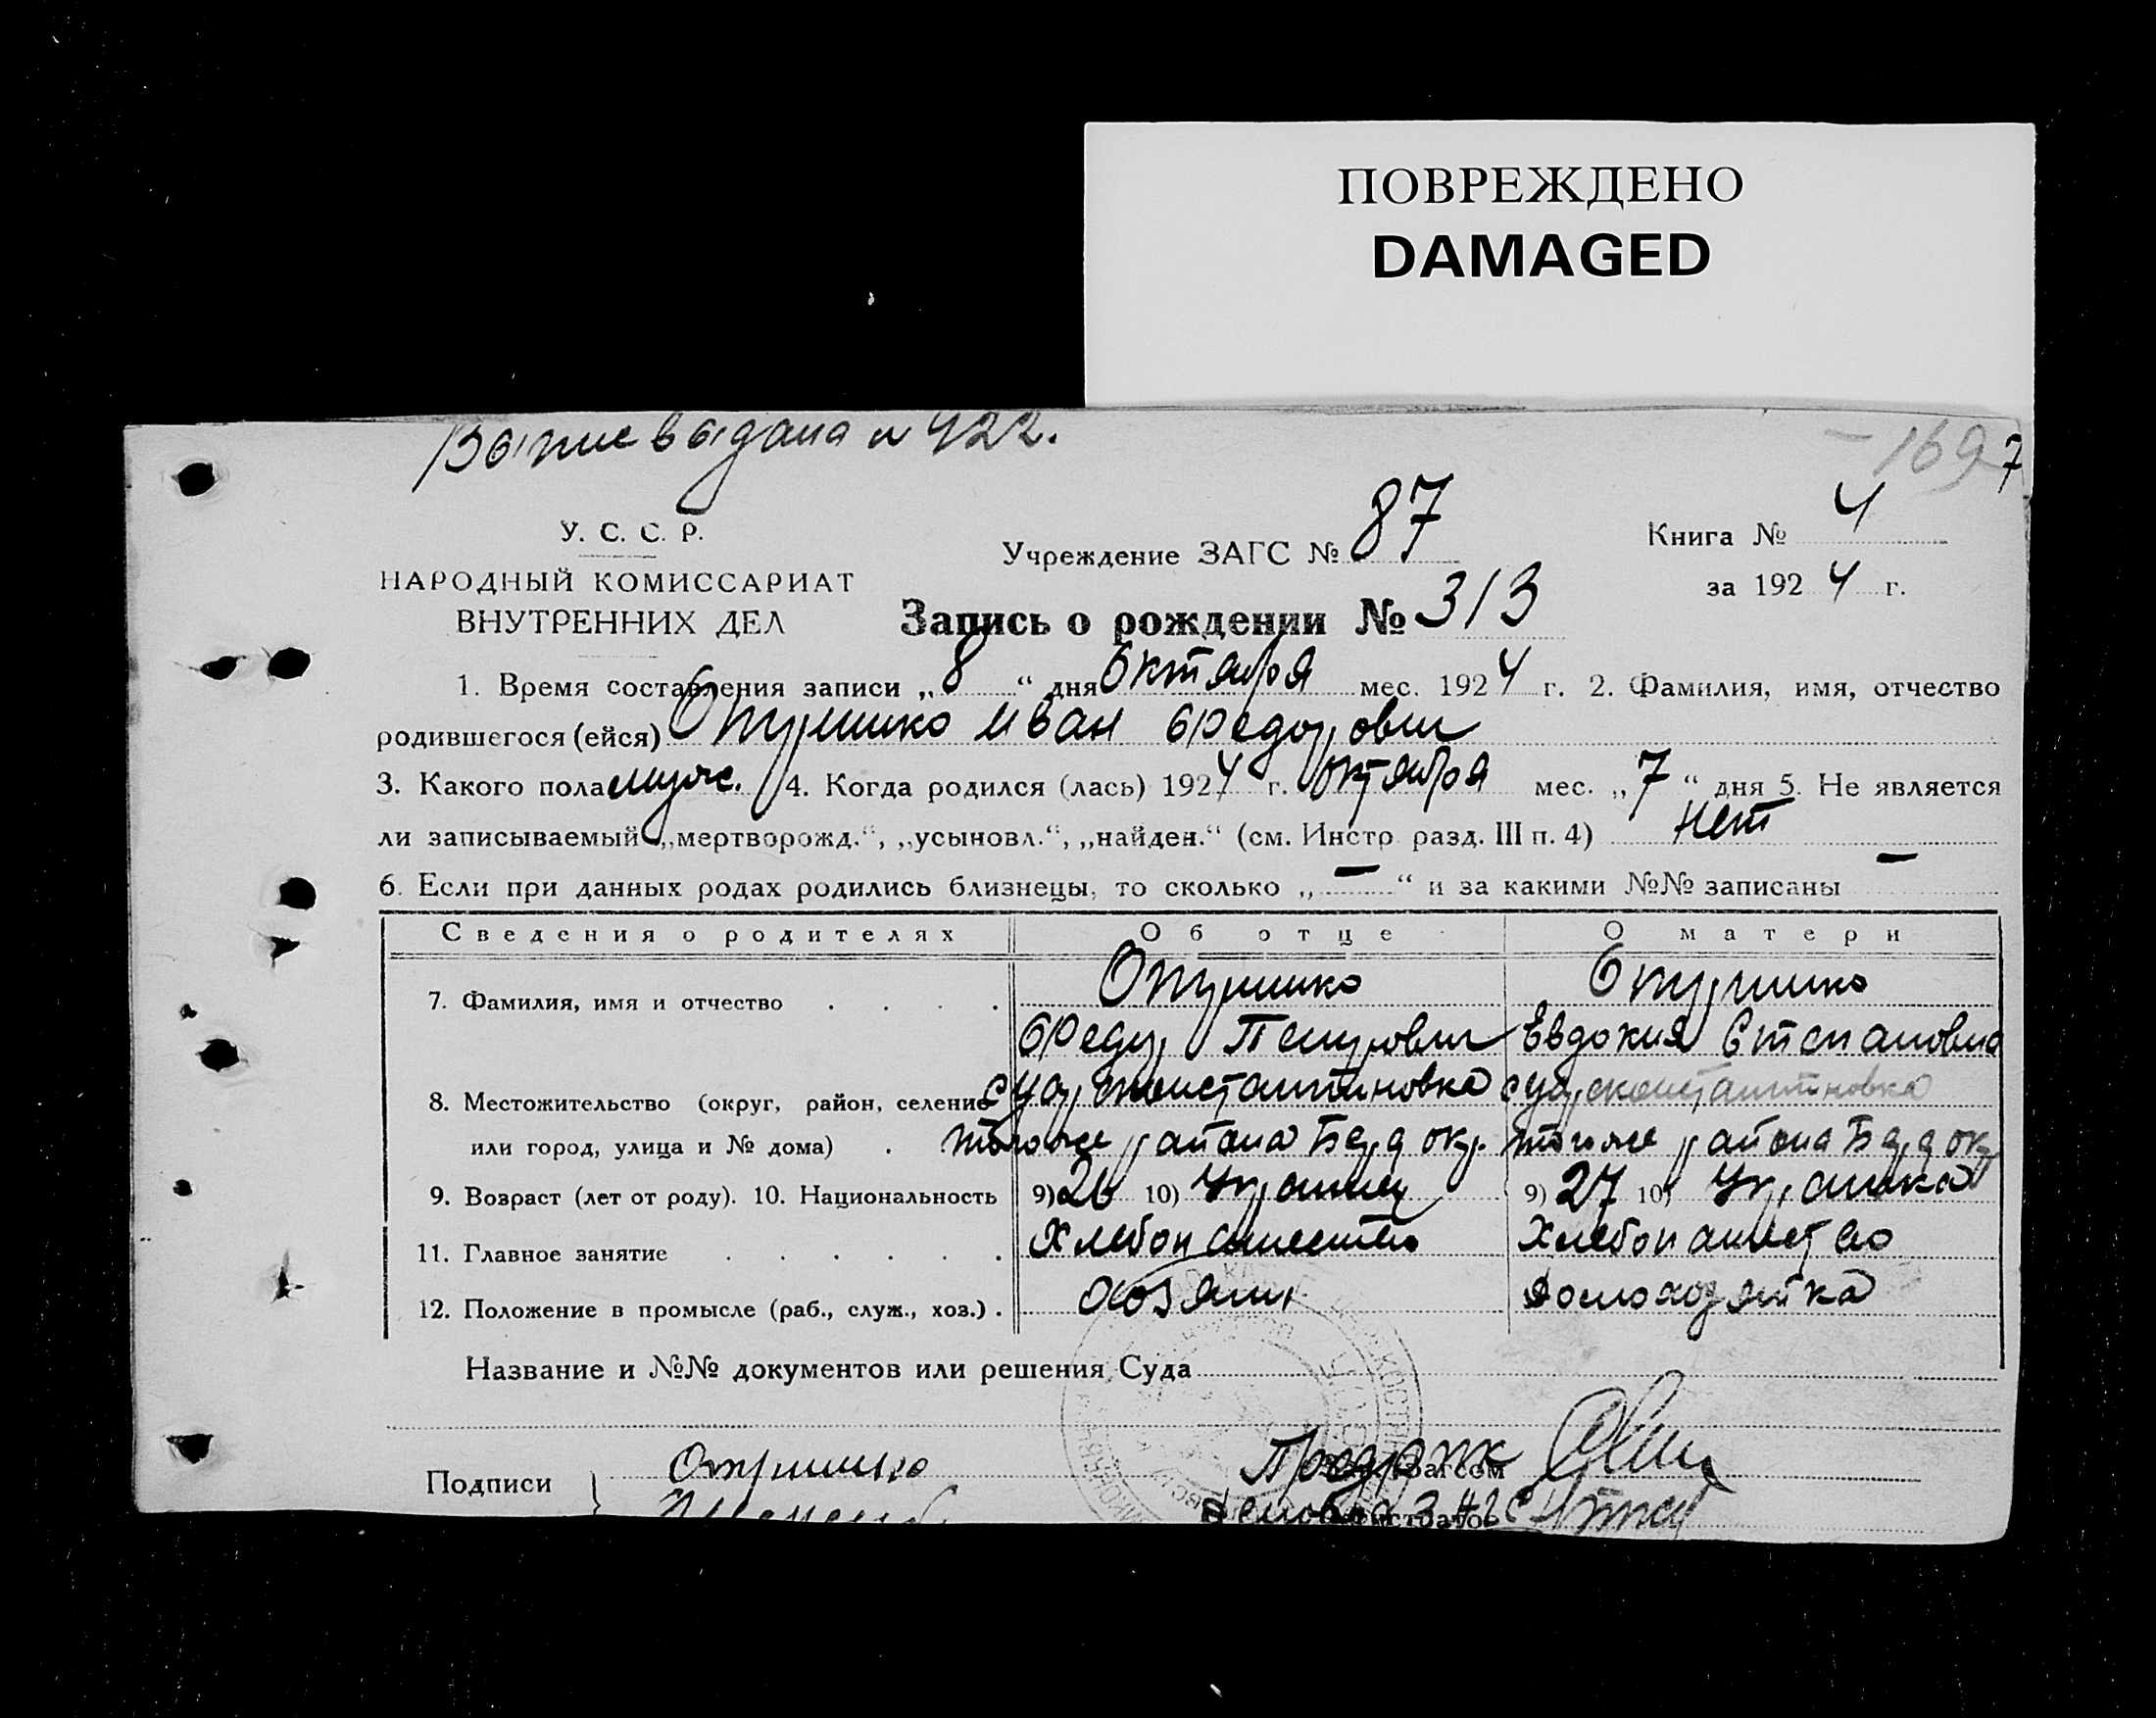 ПОВРЕЖДЕНО
DAMAGED
выдана № 422.
169 7
У. С. С. Р.
НАРОДНЫЙ КОМИССАРИАТ
ВНУТРЕННИХ ДЕЛ
Учреждение ЗАГС № 87
Книга № 4
за 1924 г.
Запись о рождении № 313
1. Время составления записи „8“ дня Октября мес. 1924 г. 2. Фамилия, имя, отчество
родившегося (ейся) Опришко Иван Федорович
3. Какого пола муж. 4. Когда родился (лась) 1924 г. октября мес. „7“ дня 5. Не является
ли записываемый „мертворожд.“, „усыновл.“, „найден.“ (см. Инстр. разд. III п. 4) нет
6. Если при данных родах родились близнецы, то сколько „—“ и за какими №№ записаны —
Сведения о родителях Об отце О матери
7. Фамилия, имя и отчество . . . . Опришко Опришко
Федор Петрович Евдокия Степановна
8. Местожительство (округ, район, селение
или город, улица и № дома) . того же района Берд окр. того же района Берд окр
9. Возраст (лет от роду). 10. Национальность 9) 26 10) Украинец 9) 27 10) Украинка
11. Главное занятие . . . . . . Хлебопашество Хлебопашество
12. Положение в промысле (раб., служ., хоз.) . хозяин домохозяйка
Название и №№ документов или решения Суда
Подписи Опришко